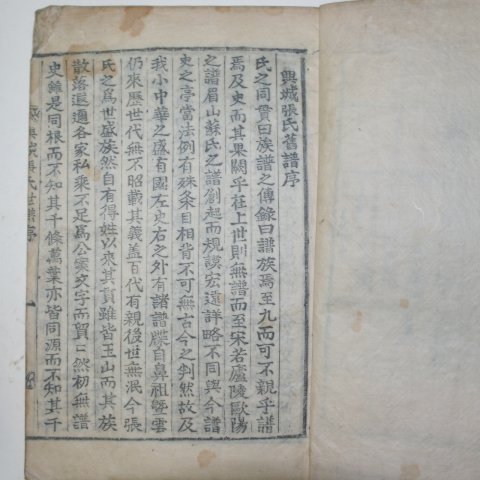 興城張氏舊譜序
氏之同貫曰族譜之傳錄曰譜族焉至九而可不親乎譜
焉及吏而其果闕乎在上世則無譜而至宋若廬陵歐陽
之譜眉山蘇氏之譜創起而規謨宏遠詳略不同與今譜
史之亭當法例有殊条目相背不可無古今之判然故及
我小中華之盛有國左史右之外有諸譜牒自鼻祖曁雲
仍來歷世代無不昭載其義盖百代有親後世無泯今張
氏之爲世盛族然自有得姓以來其貫雖皆玉山而其族
散落遐邇各家私乘不足爲公案文字而貿〻然初無譜
史雖是同根而不知其千條萬葉亦皆同源而不知其千
興城張氏世譜序
一